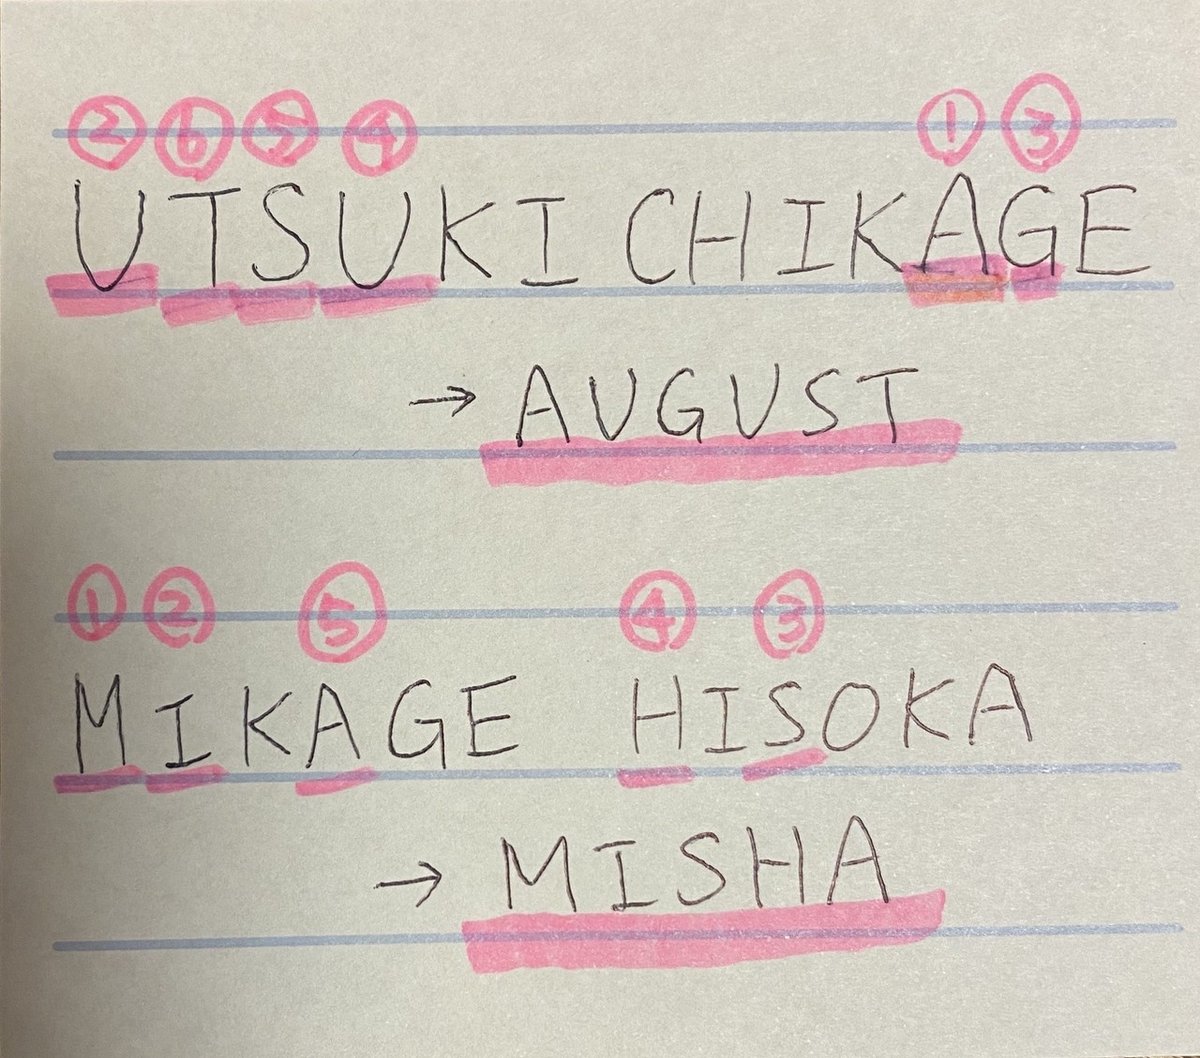 ② ⑥ ⑤ ④ ① ③
UTSUKI CHIKAGE
→ AUGUST
① ② ⑤ ④ ③
MIKAGE HISOKA
→ MISHA